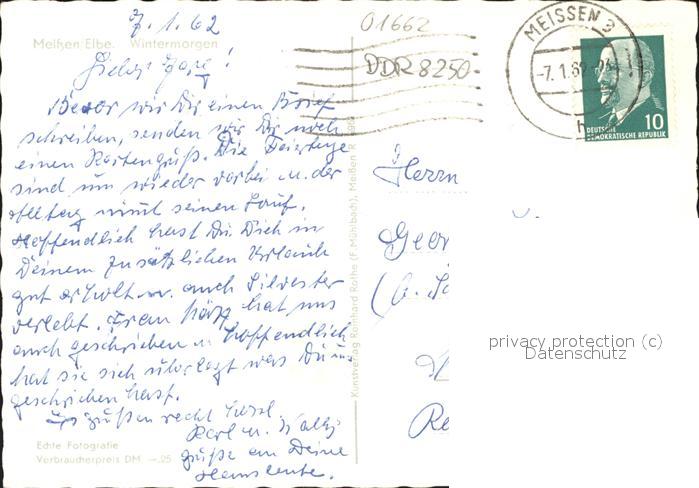 7.1.62
Meißen/Elbe. Wintermorgen
Lieber
Bevor wir Dir einen Brief
schreiben, senden wir Dir noch
einen Kartengruß. Die Feiertage
sind nun wieder vorbei u. der
Alltag nimt seinen Lauf.
Hoffendlich hast Du Dich in
Deinem zusätzlichen Urlaub
gut erholt u. auch Silvester
verlebt. Frau hat uns
auch geschrieben u. hoffendlich
hat sie sich überlegt was Du uns
geschrieben hast.
Es grüßen recht herzl.
Karl u.
Grüße an Deine
Hausleute.
Echte Fotografie
Verbraucherpreis DM —.25
Kunstverlag Reinhard Rothe (F. Mühlbach), Meißen
01662
DDR 8250
MEISSEN 3
-7.1.62
h
10
DEUTSCHE
DEMOKRATISCHE REPUBLIK
Herrn
Geor
privacy protection (c)
Datenschutz